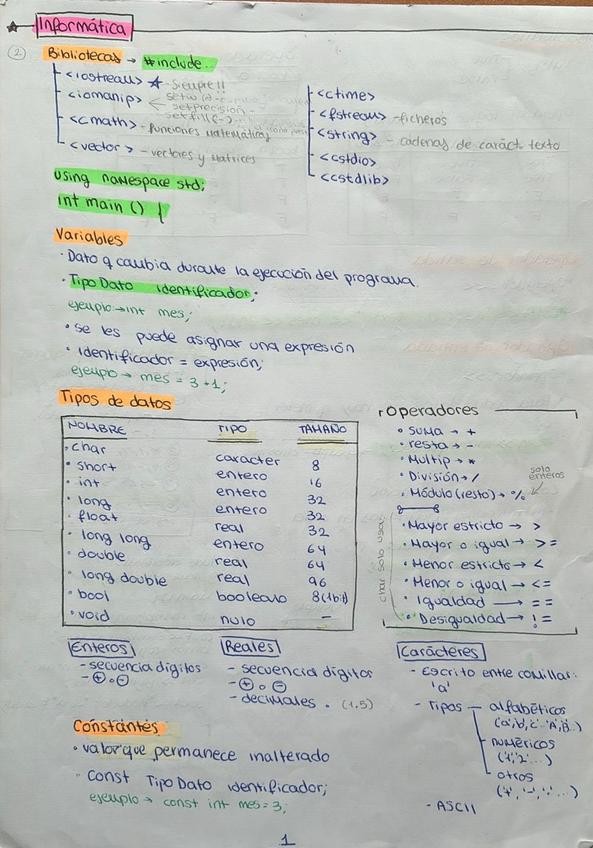 Informática
②
Bibliotecas → #include...
<iostream> ★ - Siempre!!
<iomanip> ← setw
setprecision -
setfill(-).
<cmath> - funciones matemáticas
<vector> - vectores y matrices
<ctime>
<fstream> - ficheros
<string> - cadenas de caráct. texto
<cstdio>
<cstdlib>
using namespace std;
int main () {
Variables
· Dato q cambia durante la ejecución del programa.
· Tipo Dato identificador;
ejemplo → int mes;
· se les puede asignar una expresión
· identificador = expresión;
ejemplo → mes = 3+1;
Tipos de datos
NOMBRE TIPO TAMAÑO
· char caracter 8
· short entero 16
· int entero 32
· long entero 32
· float real 32
· long long entero 64
· double real 64
· long double real 96
· bool booleano 8(1bit)
· void nulo -
Operadores
· suma → +
· resta → -
· Multip → *
· División → /
· Módulo (resto) → % solo enteros
char solo usa:
· Mayor estricto → >
· Mayor o igual → >=
· Menor estricto → <
· Menor o igual → <=
· Igualdad → ==
· Desigualdad → !=
Enteros
- secuencia dígitos
- ⊕ o ⊖
Reales
- secuencia dígitos
- ⊕ o ⊖
- decimales . (1.5)
Carácteres
- Escrito entre comillas:
'a'
- Tipos - alfabéticos
('a','b','c'...'A','B'...)
numéricos
('1','2'...)
otros
('+','-',':'...)
- ASCII
Constantes
· valor que permanece inalterado
· Const Tipo Dato identificador;
ejemplo → const int mes=3;
1